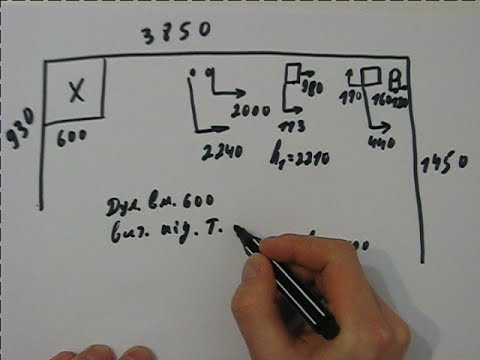 3850
X
930
600
2000
2240
980
113
h₁=2210
190
160
120
440
1450
Дух вм. 600
виг. під. Т.